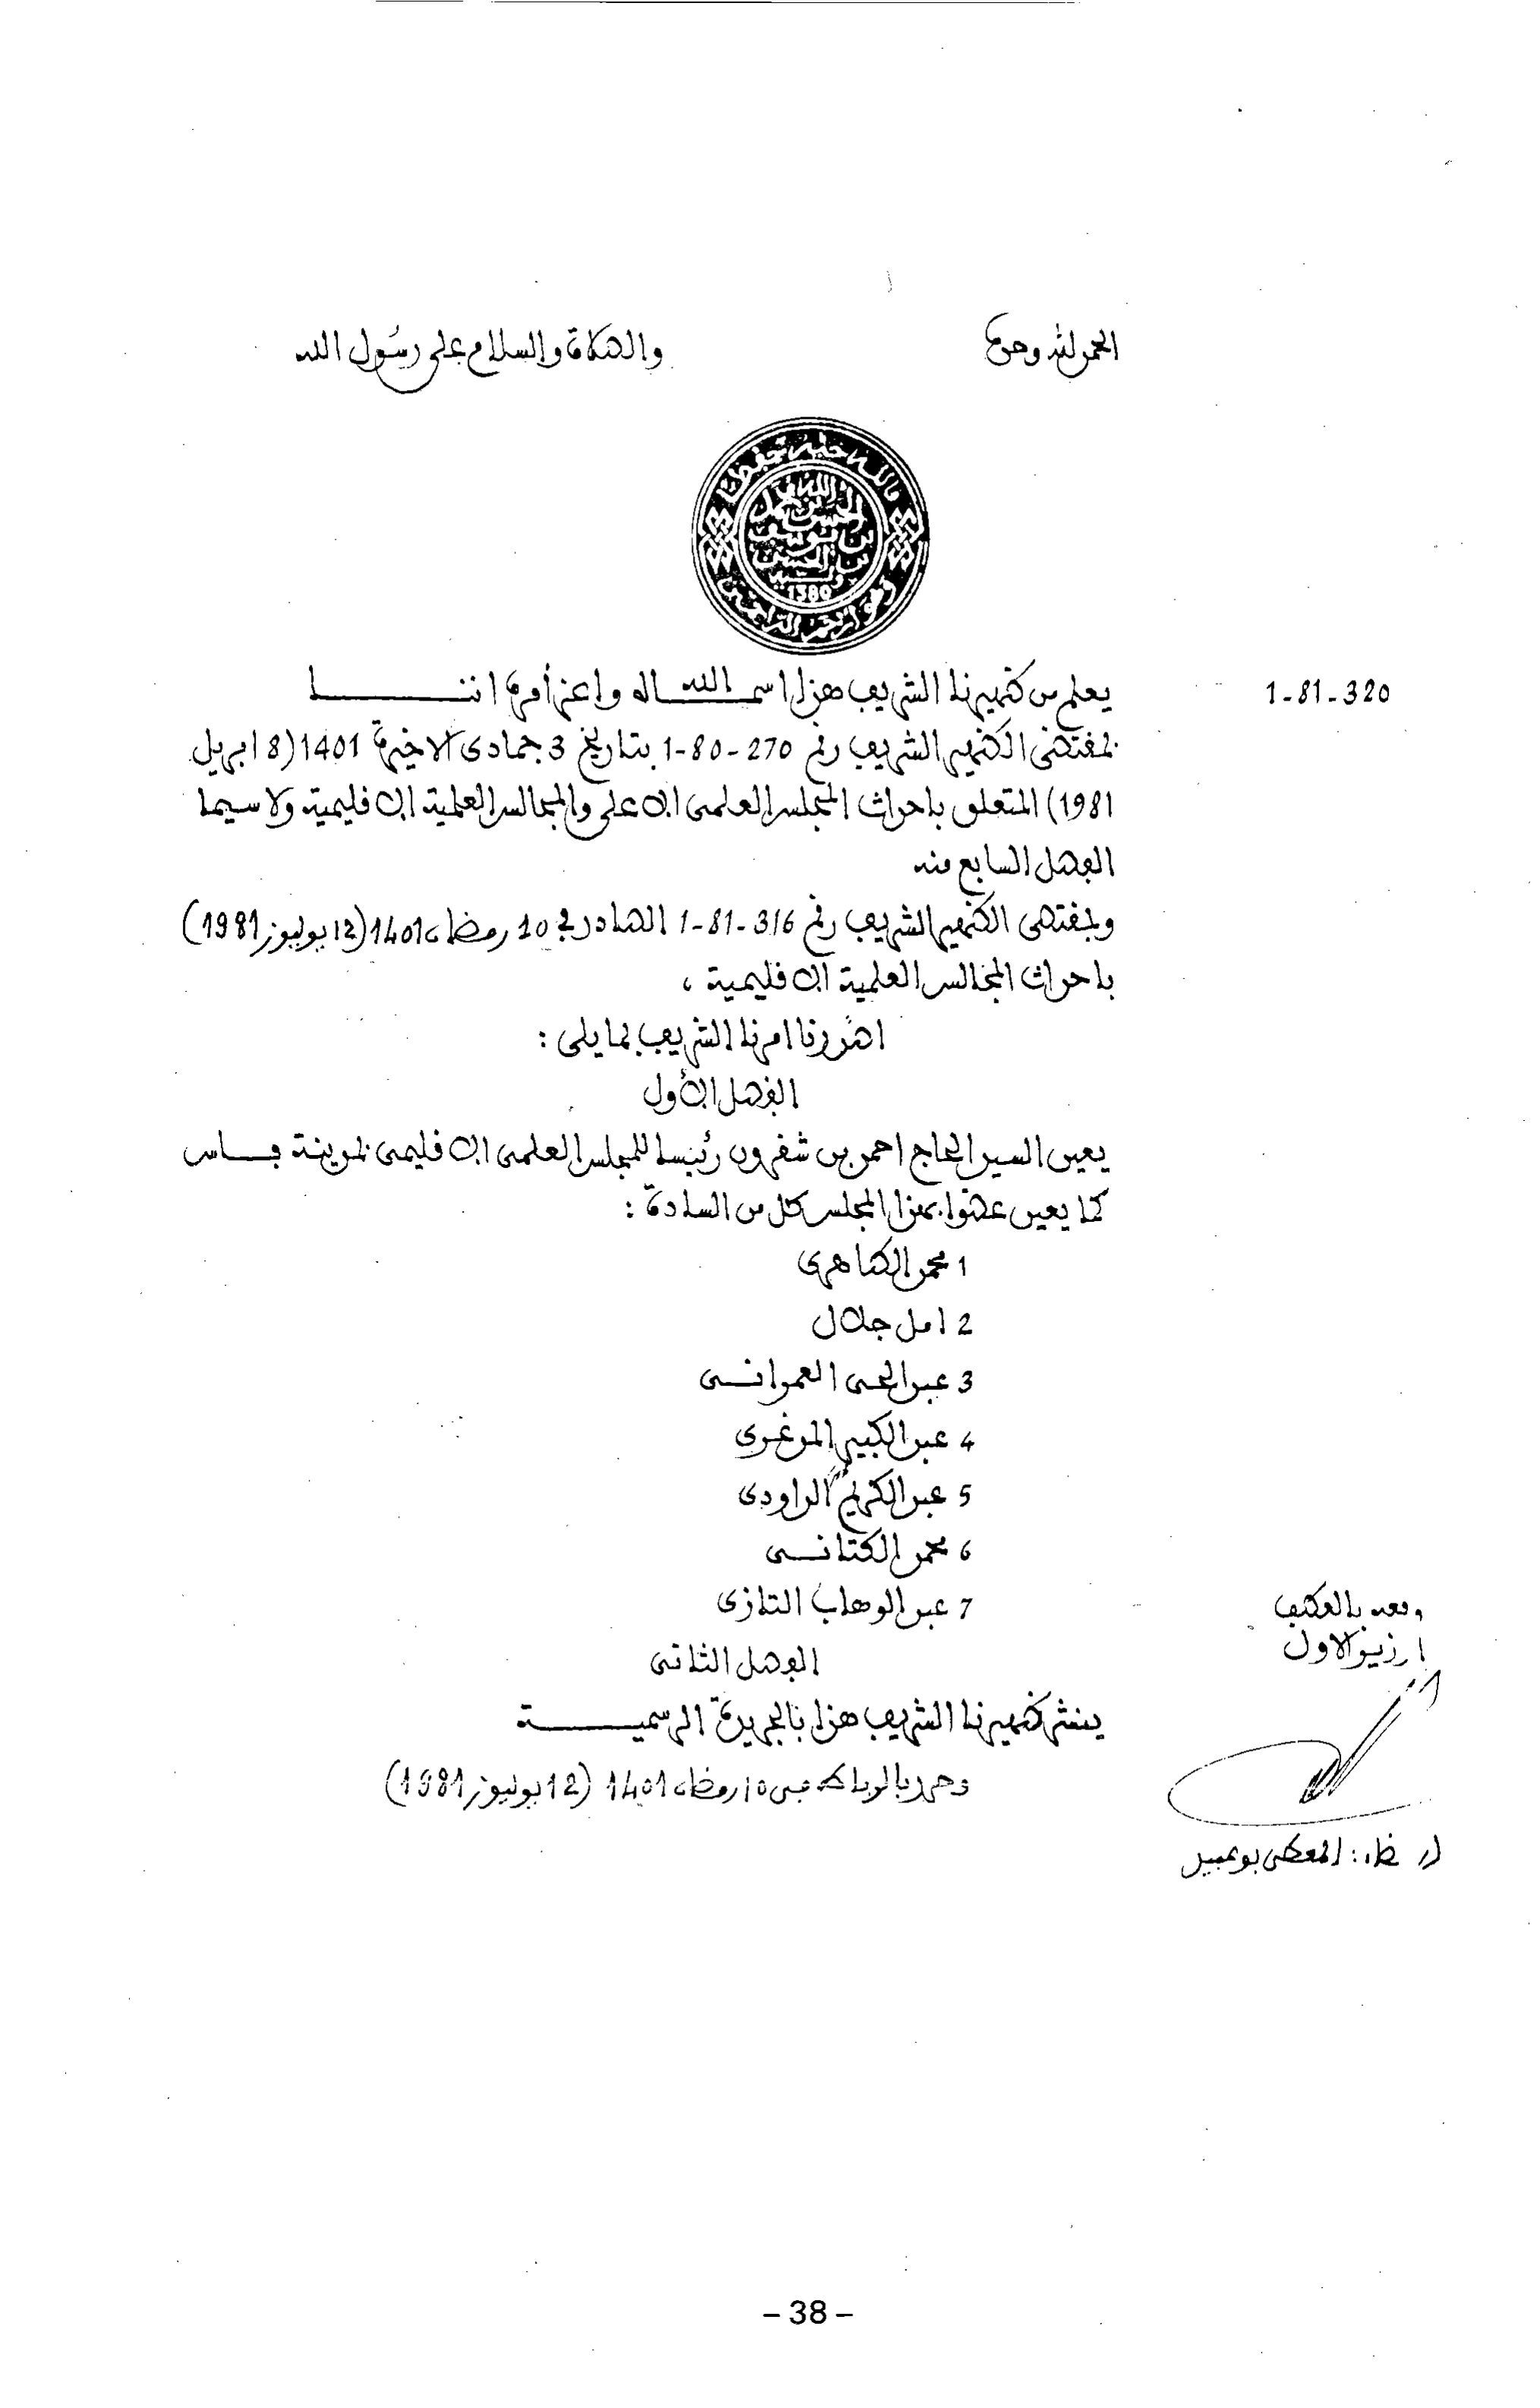 الحمد لله وحده
والصلاة والسلام على رسول الله
بالله خليه تحفظنا
1380
وهو أرحم الراحمين
1-81-320
يعلم من ظهيرنا الشريف هذا اسمـــاه الله واعز أمره اننـــــا
بمقتضى الظهير الشريف رقم 270-80-1 بتاريخ 3 جمادى الاخيرة 1401 (8 ابريل
1981) المتعلق باحداث المجلس العلمى الاعلى والمجالس العلمية الاقليمية ولاسيما
الفصل السابع منه
وبمقتضى الظهير الشريف رقم 316-81-1 الصادر في 10 رمضان 1401 (12 يوليوز 1981)
باحداث المجالس العلمية الاقليمية ،
اصدرنا امرنا الشريف بما يلى :
الفصل الأول
يعين السيد الحاج احمد بن شقرون رئيسا للمجلس العلمى الاقليمى لمدينة فـــاس
كما يعين عضوا بهذا المجلس كل من السادة :
1 محمد الطاهرى
2 امل جلال
3 عبد الحى العمرانــى
4 عبد الكبير المدغرى
5 عبد الكريم الداودى
6 محمد الكتانــى
7 عبد الوهاب التازى
الفصل الثانى
ينشر ظهيرنا الشريف هذا بالجريدة الرسميـــــة
وحرر بالرباط فى 10 رمضان 1401 (12 يوليوز 1981)
وقعه بالعطف
الوزير الاول
الامضاء : المعطى بوعبيد
- 38 -